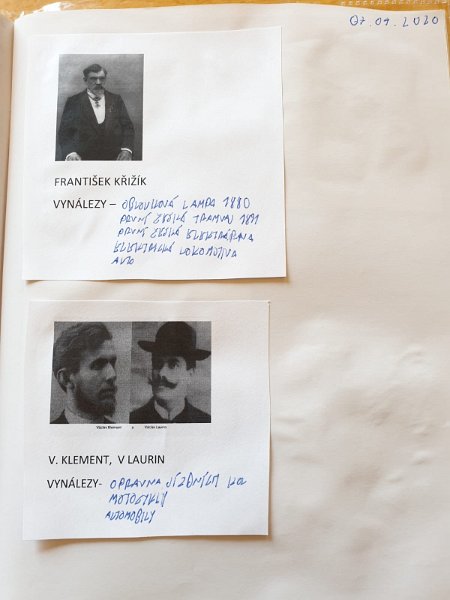 07.01.2020
FRANTIŠEK KŘIŽÍK
VYNÁLEZY – OBLOUKOVÁ LAMPA 1880
PRVNÍ ČESKÁ TRAMVAJ 1891
PRVNÍ ČESKÁ ELEKTRÁRNA
ELEKTRICKÁ LOKOMOTIVA
AUTO
Václav Klement a Václav Laurin
V. KLEMENT, V LAURIN
VYNÁLEZY- OPRAVNA JÍZDNÍCH KOL
MOTOCYKLY
AUTOMOBILY